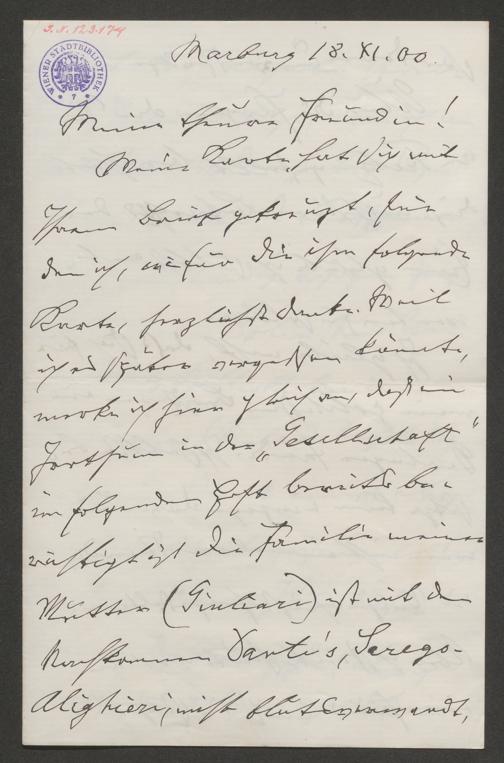 J.N. 123.174
WIENER STADTBIBLIOTHEK
* 7 *
Marburg 18. XI. 00.
Meine theure Freundin!
Meine Karte hat sich mit
Ihrem Brief gekreuzt, für
den ich, wie für die ihm folgende
Karte, herzlichst danke. Weil
ich es später vergessen könnte,
merke ich hier gleich an, daß ein
Irrthum in der „Gesellschaft"
im folgenden Heft bereits be-
richtigt ist die Familie meiner
Mutter (Giuliari) ist mit den
Nachkommen Dante's, Serego-
Alighieri, nicht blutsverwandt,